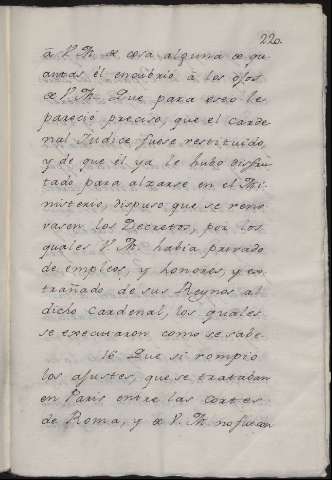 220.
à V. M. de cosa alguna de qu
antas él encubrio à los ojos
de V. M. Que para esso le
pareció preciso, que el Carde
nal Judice fuese restituido,
y de que él ya le hubo disfru
tado para alzarse en el Mi
nisterio, dispuso que se reno
vasen los Decretos, por los
quales V. M. habia privado
de empleos, y honores, y ex
trañado de sus Reynos al
dicho Cardenal, los quales
se executaron como se sabe.
16. Que si rompio
los ajustes, que se trataban
en Paris entre las Cortes
de Roma, y de V. M. no fueron